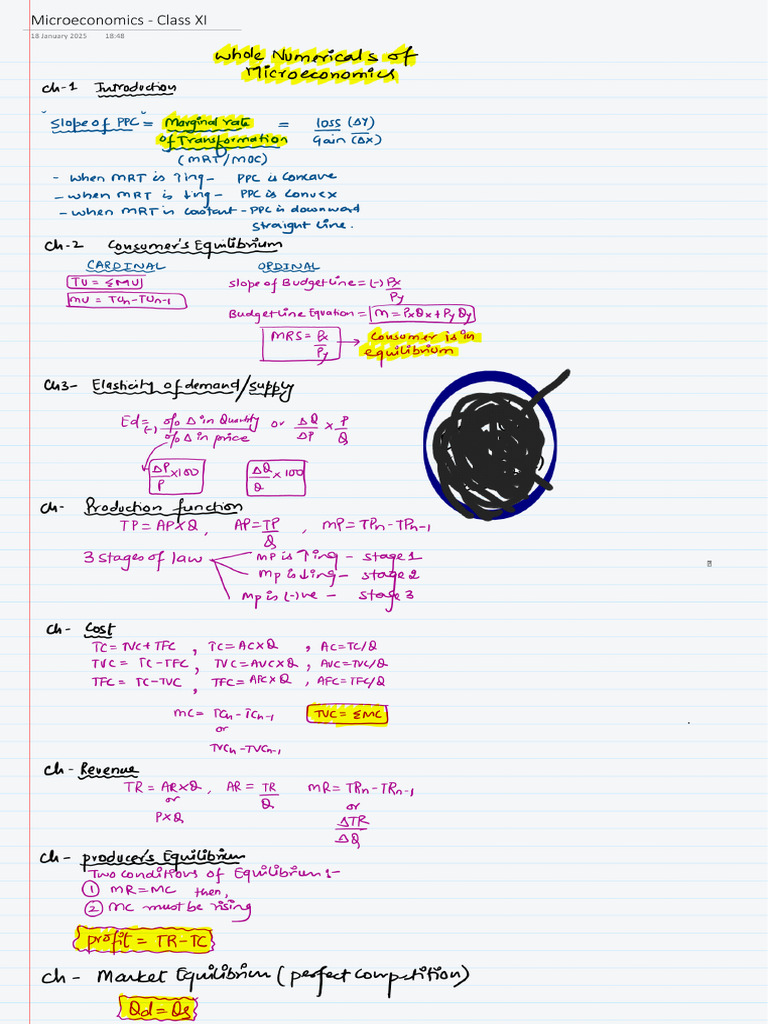 Microeconomics - Class XI
18 January 2025 18:48
Whole Numericals of
Microeconomics
Ch-1 Introduction
"Slope of PPC" = Marginal rate of Transformation (MRT/MOC) = loss (ΔY) / Gain (ΔX)
- when MRT is ↑ing - PPC is concave
- when MRT is ↓ing - PPC is convex
- when MRT is costant - PPC is downward
straight line.
Ch-2 Consumer's Equilibrium
CARDINAL ORDINAL
TU = ΣMU
MU = TUn - TUn-1
Slope of Budget Line = (-) Px/Py
Budget Line Equation = M = PxQx + PyQy
MRS = Px/Py → Consumer is in
equilibrium
Ch3- Elasticity of demand/supply
Ed = (-) % Δ in Quantity / % Δ in price or ΔQ/ΔP × P/Q
ΔP/P × 100 ΔQ/Q × 100
Ch- Production function
TP = AP×Q, AP = TP/Q, MP = TPn - TPn-1
3 stages of law
MP is ↑ing - stage 1
MP is ↓ing - stage 2
MP is (-)ve - stage 3
Ch- Cost
TC = TVC + TFC, TC = AC×Q, AC = TC/Q
TVC = TC - TFC, TVC = AVC×Q, AVC = TVC/Q
TFC = TC - TVC, TFC = AFC×Q, AFC = TFC/Q
MC = TCn - TCn-1 TVC = ΣMC
or
TVCn - TVCn-1
Ch- Revenue
TR = AR×Q, AR = TR/Q MR = TRn - TRn-1
or or
P×Q ΔTR/ΔQ
Ch- producer's Equilibrium
Two conditions of Equilibrium :-
① MR = MC then,
② MC must be rising
profit = TR - TC
Ch- Market Equilibrium (perfect competition)
Qd = Qs